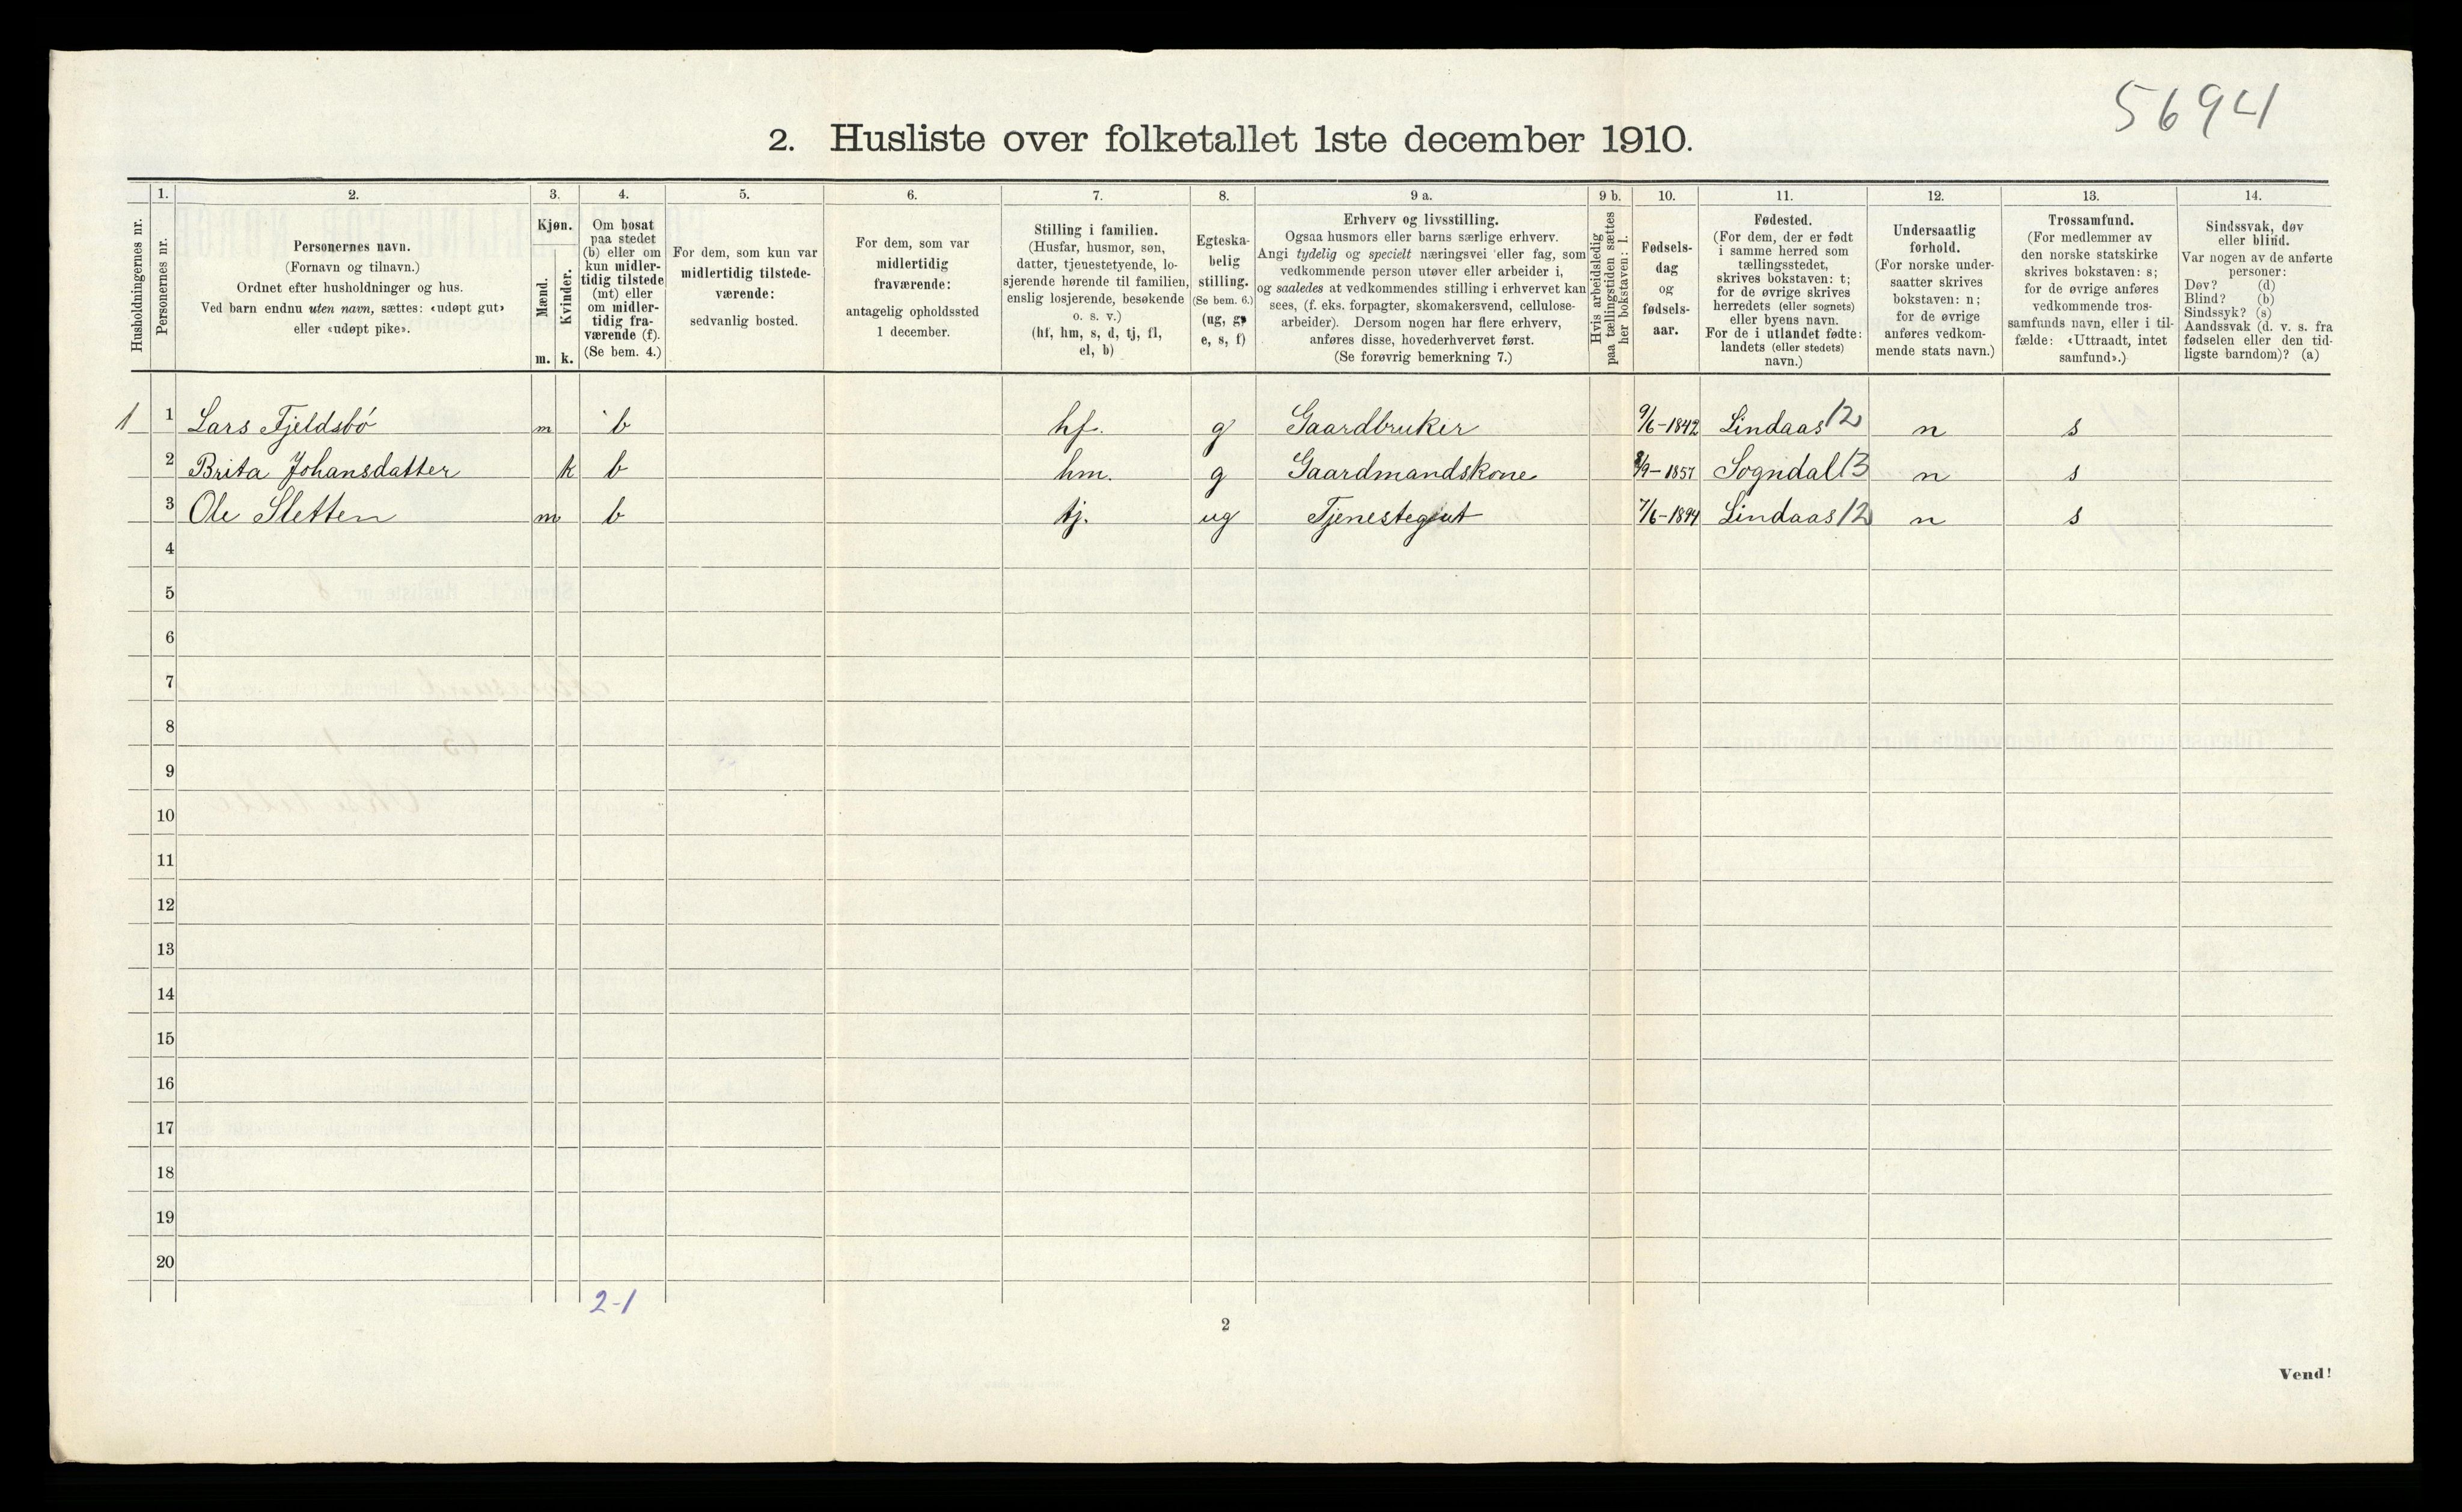 5694
2. Husliste over folketallet 1ste december 1910.
Husholdningernes nr.
1.
Personernes nr.
2.
Personernes navn.
(Fornavn og tilnavn.)
Ordnet efter husholdninger og hus.
Ved barn endnu uten navn, sættes: «udøpt gut»
eller «udøpt pike».
3.
Kjøn.
Mænd.
Kvinder.
m. k.
4.
Om bosat
paa stedet
(b) eller om
kun midler-
tidig tilstede
(mt) eller
om midler-
tidig fra-
værende (f).
(Se bem. 4.)
5.
For dem, som kun var
midlertidig tilstede-
værende:
sedvanlig bosted.
6.
For dem, som var
midlertidig
fraværende:
antagelig opholdssted
1 december.
7.
Stilling i familien.
(Husfar, husmor, søn,
datter, tjenestetyende, lo-
sjerende hørende til familien,
enslig losjerende, besøkende
o. s. v.)
(hf, hm, s, d, tj, fl,
el, b)
8.
Egteska-
belig
stilling.
(Se bem. 6.)
(ug, g,
e, s, f)
9 a.
Erhverv og livsstilling.
Ogsaa husmors eller barns særlige erhverv.
Angi tydelig og specielt næringsvei eller fag, som
vedkommende person utøver eller arbeider i,
og saaledes at vedkommendes stilling i erhvervet kan
sees, (f. eks. forpagter, skomakersvend, cellulose-
arbeider). Dersom nogen har flere erhverv,
anføres disse, hovederhvervet først.
(Se forøvrig bemerkning 7.)
9 b.
Hvis arbeidsledig
paa tællingstiden sættes
her bokstaven: l.
10.
Fødsels-
dag
og
fødsels-
aar.
11.
Fødested.
(For dem, der er født
i samme herred som
tællingsstedet,
skrives bokstaven: t;
for de øvrige skrives
herredets (eller sognets)
eller byens navn.
For de i utlandet fødte:
landets (eller stedets)
navn.)
12.
Undersaatlig
forhold.
(For norske under-
saatter skrives
bokstaven: n;
for de øvrige
anføres vedkom-
mende stats navn.)
13.
Trossamfund.
(For medlemmer av
den norske statskirke
skrives bokstaven: s;
for de øvrige anføres
vedkommende tros-
samfunds navn, eller i til-
fælde: «Uttraadt, intet
samfund».)
14.
Sindssvak, døv
eller blind.
Var nogen av de anførte
personer:
Døv? (d)
Blind? (b)
Sindssyk? (s)
Aandssvak (d. v. s. fra
fødselen eller den tid-
ligste barndom)? (a)
1 1 Lars Fjeldsbó m b hf. g Gaardbruker 9/6-1842 Lindaas 12 n s
2 Brita Johansdatter k b hm. g Gaardmandskone 8/9-1857 Sogndal 13 n s
3 Ole Sletten m b tj. ug Tjenestegut 7/6-1894 Lindaas 12 n s
4
5
6
7
8
9
10
11
12
13
14
15
16
17
18
19
20
2-1
2
Vend!